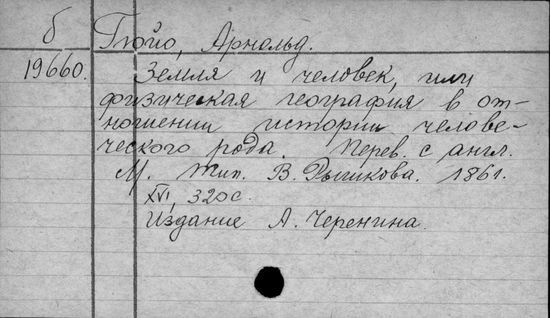 б Гюйо, Арнольд.
19660. Земля и человек, или
физическая география в от-
ношении истории челове-
ческого рода. Перев. с англ.
М. Тип. В. Рышкова. 1861.
XVI, 320 с.
Издание А. Черенина.